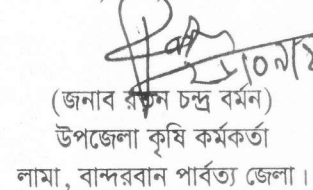 (জনাব রতন চন্দ্র বর্মন)
উপজেলা কৃষি কর্মকর্তা
লামা, বান্দরবান পার্বত্য জেলা।